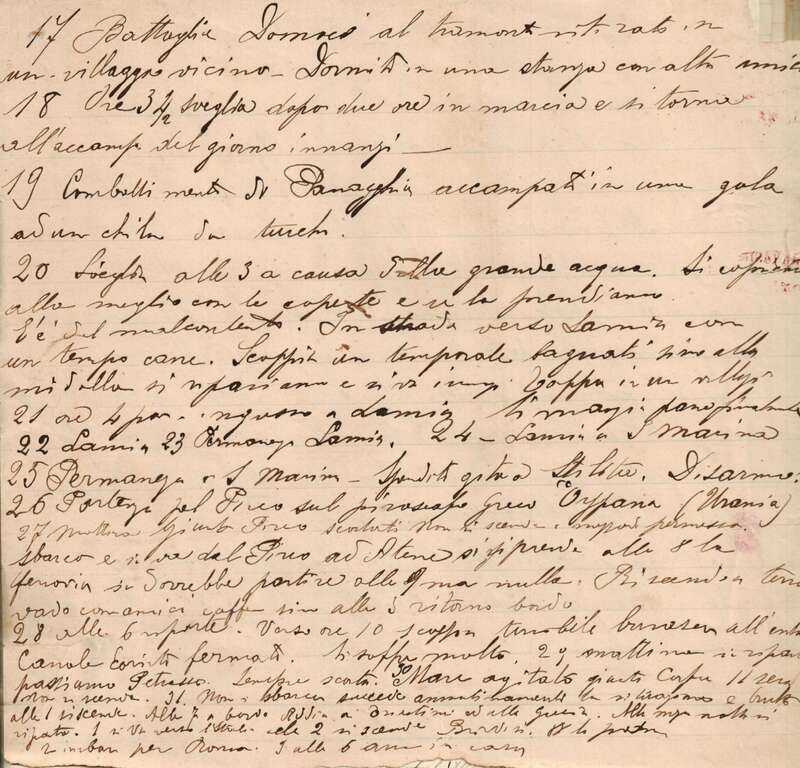 17 Battaglia Domocò al tramont ritirati in
un villaggio vicino - Dormiti in una stanza con altri amici
18 Ore 3 1/2 sveglia dopo due ore in marcia e si torna
all'accamp del giorno innanzi —
19 Combattimenti di accampati in una gola
ad un chilm da turchi.
20 Sveglia alle 3 a causa della grande acqua. Si copriamo
alla meglio con le coperte e ce la prendiamo
C'è del malcontento. In strada verso Lamia con
un tempo cane. Scoppia un temporale bagnati sino alla
midolla si ripariamo e si va innanzi. Tappa in un villagi
21 ore 4 pom ingresso a Lamia si mangia pane
22 Lamia 23 Permanenza Lamia. 24 - Lamia a S Marina
25 Permanenza a S Marina - Spediti a Stilitza. Disarmo.
26 Partenza pel Pireo sul piroscafo Greco "Orpana (Urania)
27 Mattina Giunti Pireo scortati Non si scende permesso.
sbarco e si va dal Pireo ad Atene si riprende alle 8 la
ferrovia si dovrebbe partire alle 9 ma nulla. Riscendo a terra
vado con amici caffe sino alle 3 ritorno bordo
28 alle 6 si parte. Verso ore 10 scoppia terribile burrasca all'entr
Canale Corinto fermati. Si soffre molto. 29 mattina si ripar
passiamo Petrasso. Sempre scorti. 30 Mare agitato giunti Corfu 11 sera
non si scende. 31. Non si sbarca succede e
alle 1 si scende. Alle 7 a bordo Addio a ed alla Grecia. Alla mezza notte si
riparte. 1 si va verso l'Italia alle 2 si scende Brindisi. 8 si parte
rimban per Roma. 3 alle 6 am in casa